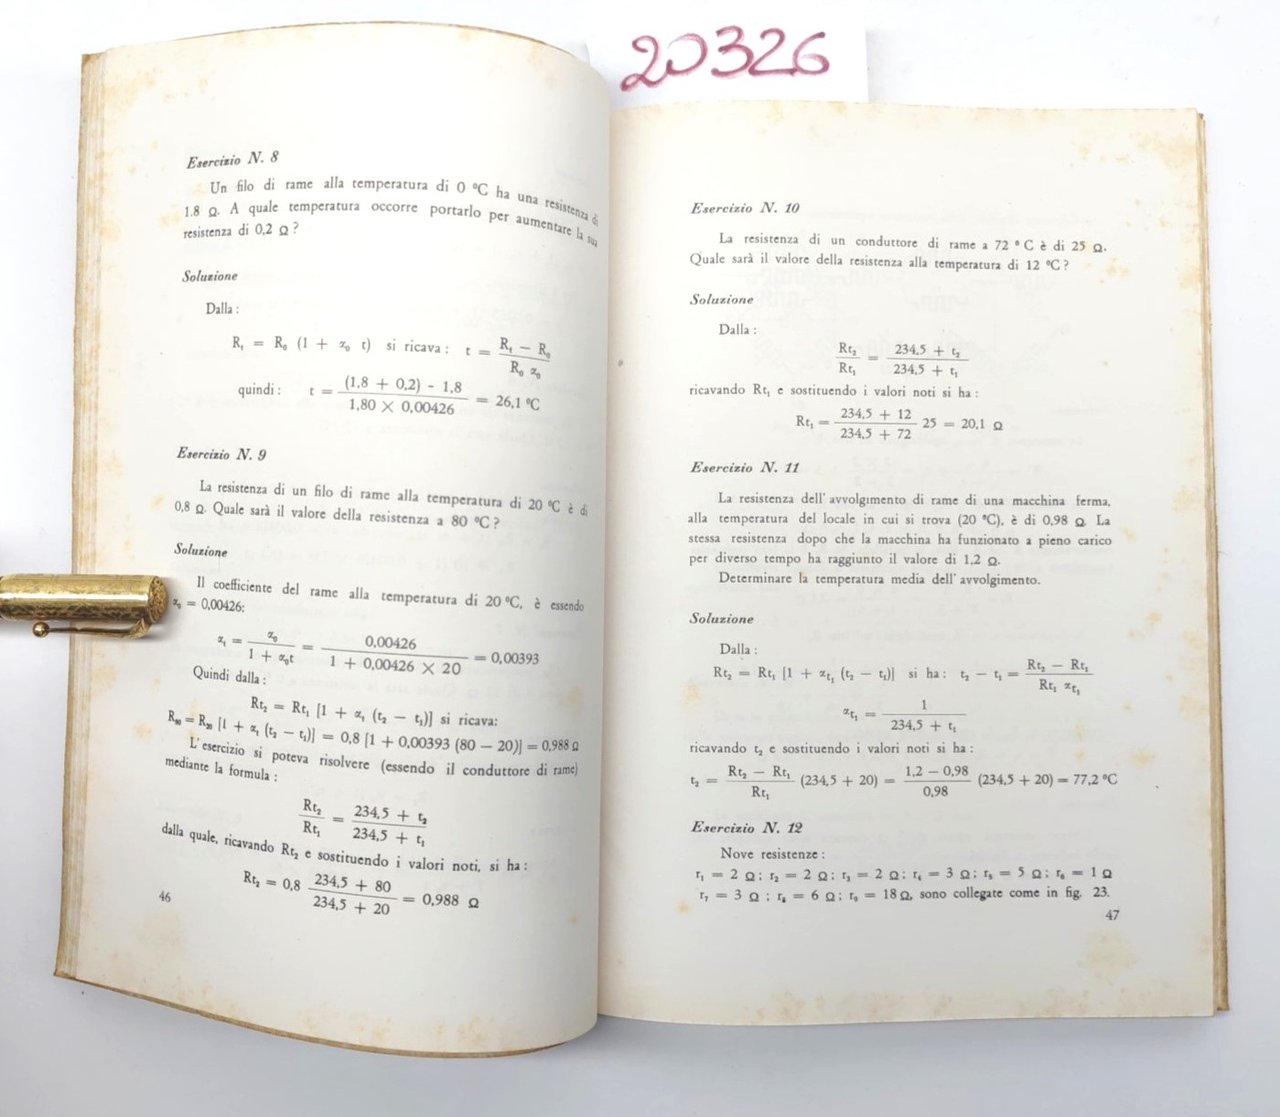 20326
Esercizio N. 8
Un filo di rame alla temperatura di 0 °C ha una resistenza di
1.8 Ω. A quale temperatura occorre portarlo per aumentare la sua
resistenza di 0,2 Ω ?
Soluzione
Dalla :
Rₜ = R₀ (1 + α₀ t) si ricava : t = (Rₜ − R₀) / (R₀ α₀)
quindi : t = ((1,8 + 0,2) - 1,8) / (1,80 × 0,00426) = 26,1 °C
Esercizio N. 9
La resistenza di un filo di rame alla temperatura di 20 °C è di
0,8 Ω. Quale sarà il valore della resistenza a 80 °C ?
Soluzione
Il coefficiente del rame alla temperatura di 20 °C, è essendo
α₀ = 0,00426:
αₜ = α₀ / (1 + α₀t) = 0,00426 / (1 + 0,00426 × 20) = 0,00393
Quindi dalla :
Rt₂ = Rt₁ [1 + αₜ (t₂ − t₁)] si ricava:
R₈₀ = R₂₀ [1 + αₜ (t₂ − t₁)] = 0,8 [1 + 0,00393 (80 − 20)] = 0,988 Ω
L'esercizio si poteva risolvere (essendo il conduttore di rame)
mediante la formula :
Rt₂ / Rt₁ = (234,5 + t₂) / (234,5 + t₁)
dalla quale, ricavando Rt₂ e sostituendo i valori noti, si ha :
Rt₂ = 0,8 (234,5 + 80) / (234,5 + 20) = 0,988 Ω
46
Esercizio N. 10
La resistenza di un conduttore di rame a 72 ° C è di 25 Ω.
Quale sarà il valore della resistenza alla temperatura di 12 °C ?
Soluzione
Dalla :
Rt₂ / Rt₁ = (234,5 + t₂) / (234,5 + t₁)
ricavando Rt₁ e sostituendo i valori noti si ha :
Rt₁ = (234,5 + 12) / (234,5 + 72) 25 = 20,1 Ω
Esercizio N. 11
La resistenza dell' avvolgimento di rame di una macchina ferma,
alla temperatura del locale in cui si trova (20 °C), è di 0,98 Ω. La
stessa resistenza dopo che la macchina ha funzionato a pieno carico
per diverso tempo ha raggiunto il valore di 1,2 Ω.
Determinare la temperatura media dell' avvolgimento.
Soluzione
Dalla :
Rt₂ = Rt₁ [1 + αt₁ (t₂ − t₁)] si ha : t₂ − t₁ = (Rt₂ − Rt₁) / (Rt₁ αt₁)
αt₁ = 1 / (234,5 + t₁)
ricavando t₂ e sostituendo i valori noti si ha :
t₂ = (Rt₂ − Rt₁) / Rt₁ (234,5 + 20) = (1,2 − 0,98) / 0,98 (234,5 + 20) = 77,2 °C
Esercizio N. 12
Nove resistenze :
r₁ = 2 Ω ; r₂ = 2 Ω ; r₃ = 2 Ω ; r₄ = 3 Ω ; r₅ = 5 Ω ; r₆ = 1 Ω
r₇ = 3 Ω ; r₈ = 6 Ω ; r₉ = 18 Ω, sono collegate come in fig. 23.
47